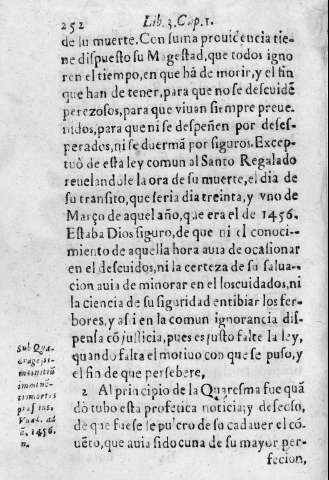 252
Lib. 3. Cap. 1.
de su muerte. Con suma prouidencia tie-
ne dispuesto su Magestad, que todos igno
ren el tiempo, en que hà de morir, y el fin
que han de tener, para que no se descuidẽ
perezosos, para que viuan siempre preue-
nidos, para que ni se despeñen por deses-
perados, ni se duermã por siguros. Excep-
tuò de esta ley comun al Santo Regalado
reuelandole la ora de su muerte, el dia de
su transito, que seria dia treinta, y vno de
Março de aquel año, que era el de 1456.
Estaba Dios siguro, de que ni el conoci-
miento de aquella hora auia de ocasionar
en el descuidos, ni la certeza de su salua-
cion auia de minorar en el los cuidados, ni
la ciencia de su siguridad entibiar los fer-
bores, y assi en la comun ignorancia dis-
pensa cõ justicia, pues es justo falte la ley,
quando falta el motiuo con que se puso, y
el fin de que persebere,
2 Al principio de la Quaresma fue quã
dò tubo esta profetica noticia; y deseoso,
de que fuese sepulcro de su cadauer el cõ-
uẽto, que auia sido cuna de su mayor per-
feccion,
Sub Qua-
dragessi-
mæ initiũ
imminẽ-
tis mortis
Vuad. ad
ã. 1456.
n.